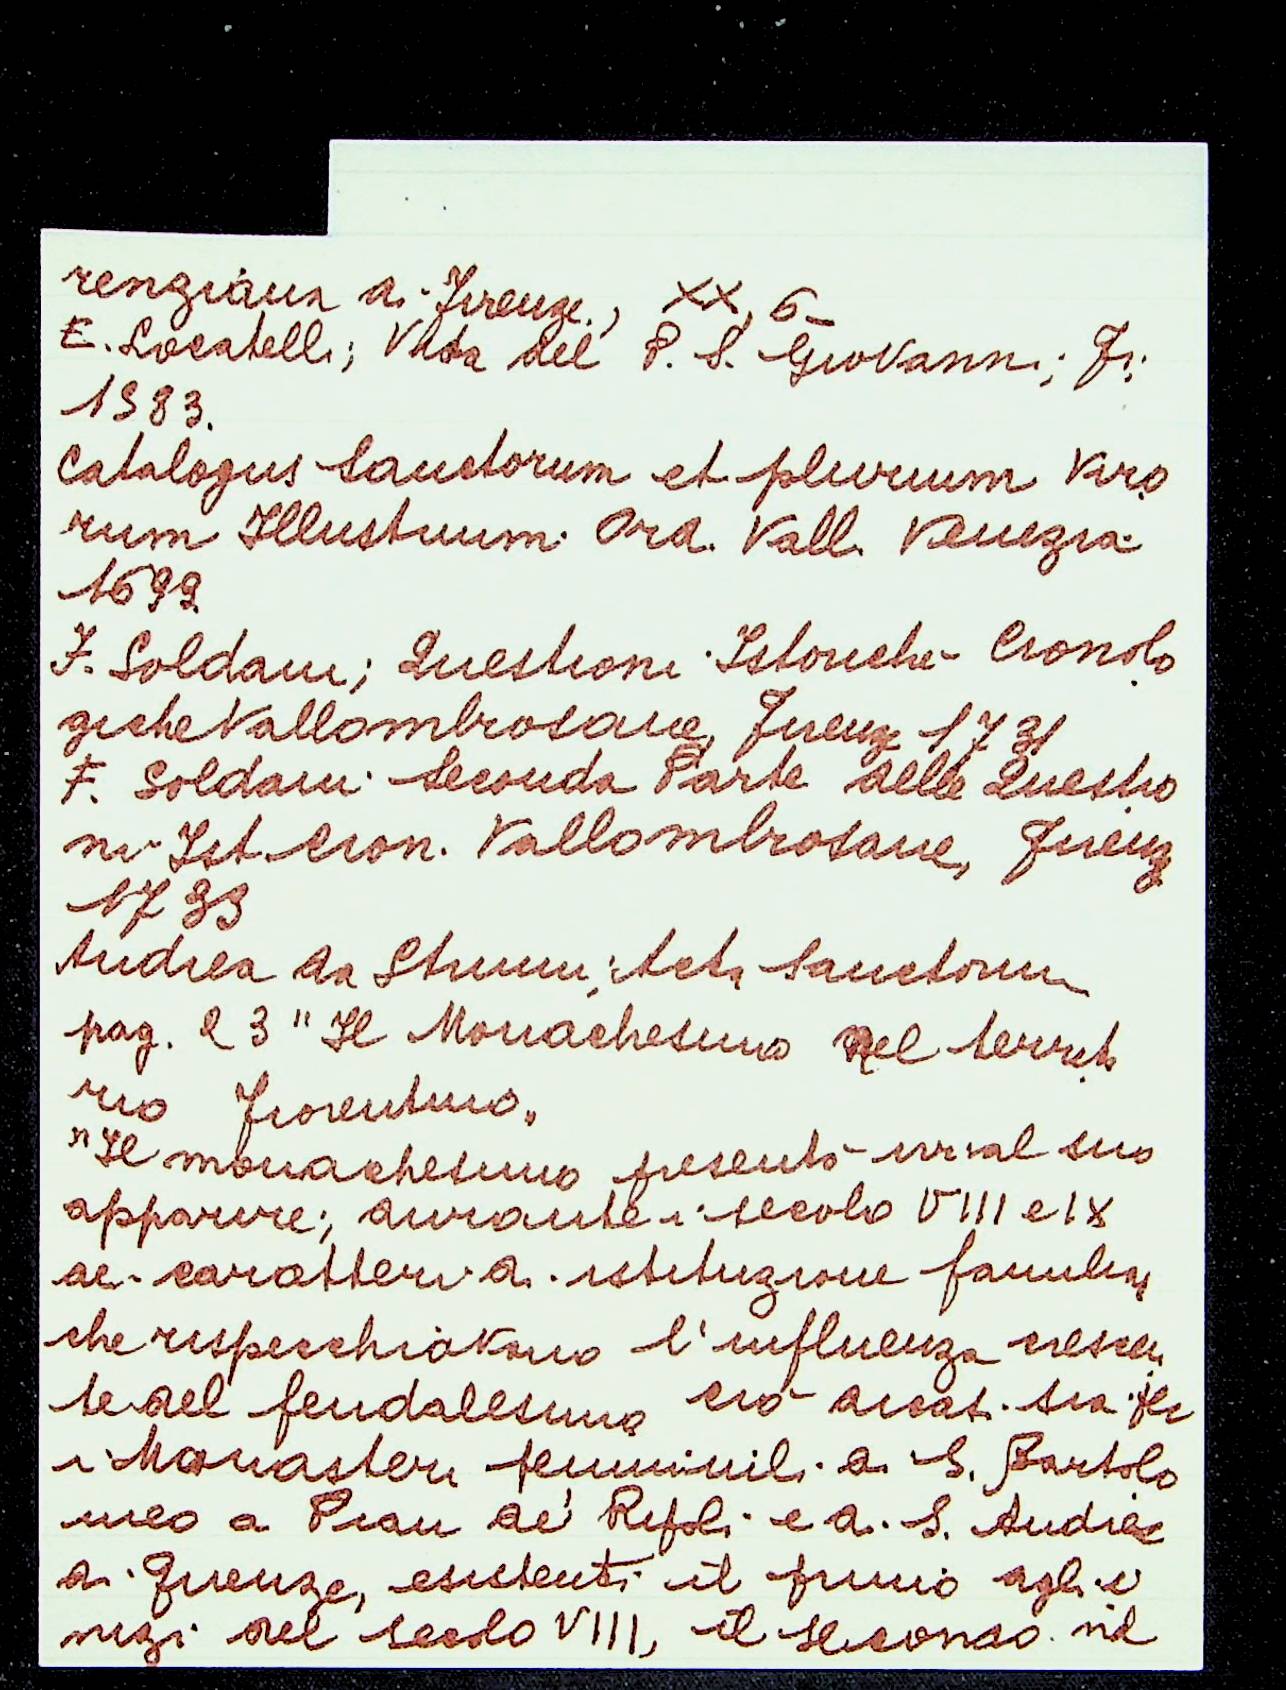 renziana di Firenze, XX, 6
E. Locatelli; Vita del P. S. Giovanni; Fi;
1583.
Catalogus Sanctorum et plurium Viro
rum Illustrium Ord. Vall. Venezia
1699
F. Soldani; Questioni Istoriche Cronolo
giche Vallombrosane, Firenz 1731
F. Soldani Seconda Parte delle Questio
ni Ist. Cron. Vallombrosane, Firenz
1733
Andrea da Strumi; Acta Sanctorum
pag. 23 "Il Monachesimo nel territo
rio Fiorentino,
"Il monachesimo presentò ivi al suo
apparire; durante i secolo VIII e IX
dei caratteri di istituzione familiar
che rispecchiavano l'influenza crescen
te del feudalesimo ciò dicasi tra
i Monasteri femminili di S. Bartolo
meo a Pian de' Ripoli e di S. Andrea
di Firenze, esistenti il primo agli i
nizi del secolo VIII, il secondo nel